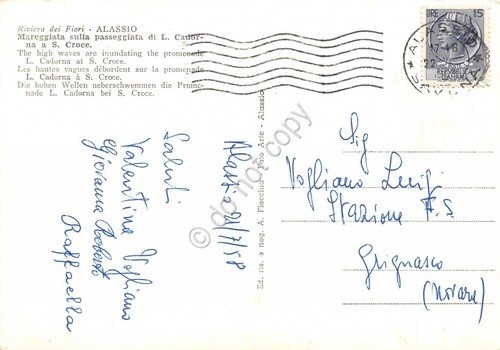 Riviera dei Fiori - ALASSIO
Mareggiata sulla passeggiata di L. Cador-
na a S. Croce.
The high waves are inundating the promenade
L. Cadorna at S. Croce.
Les hautes vagues débordent sur la promenade
L. Cadorna à S. Croce.
Die hohen Wellen ueberschwemmen die Prome-
nade L. Cadorna bei S. Croce.
LIRE 15
ALASSIO
Ed. ris. a neg. A. Fiecchia - Foto Arte - Alassio
do not copy
Alassio 21/7/58
Saluti
Valentina Vogliano
Giovanna
Raffaella
Sig
Vogliano Luigi
Stazione F.S
Grignasco
(Novara)